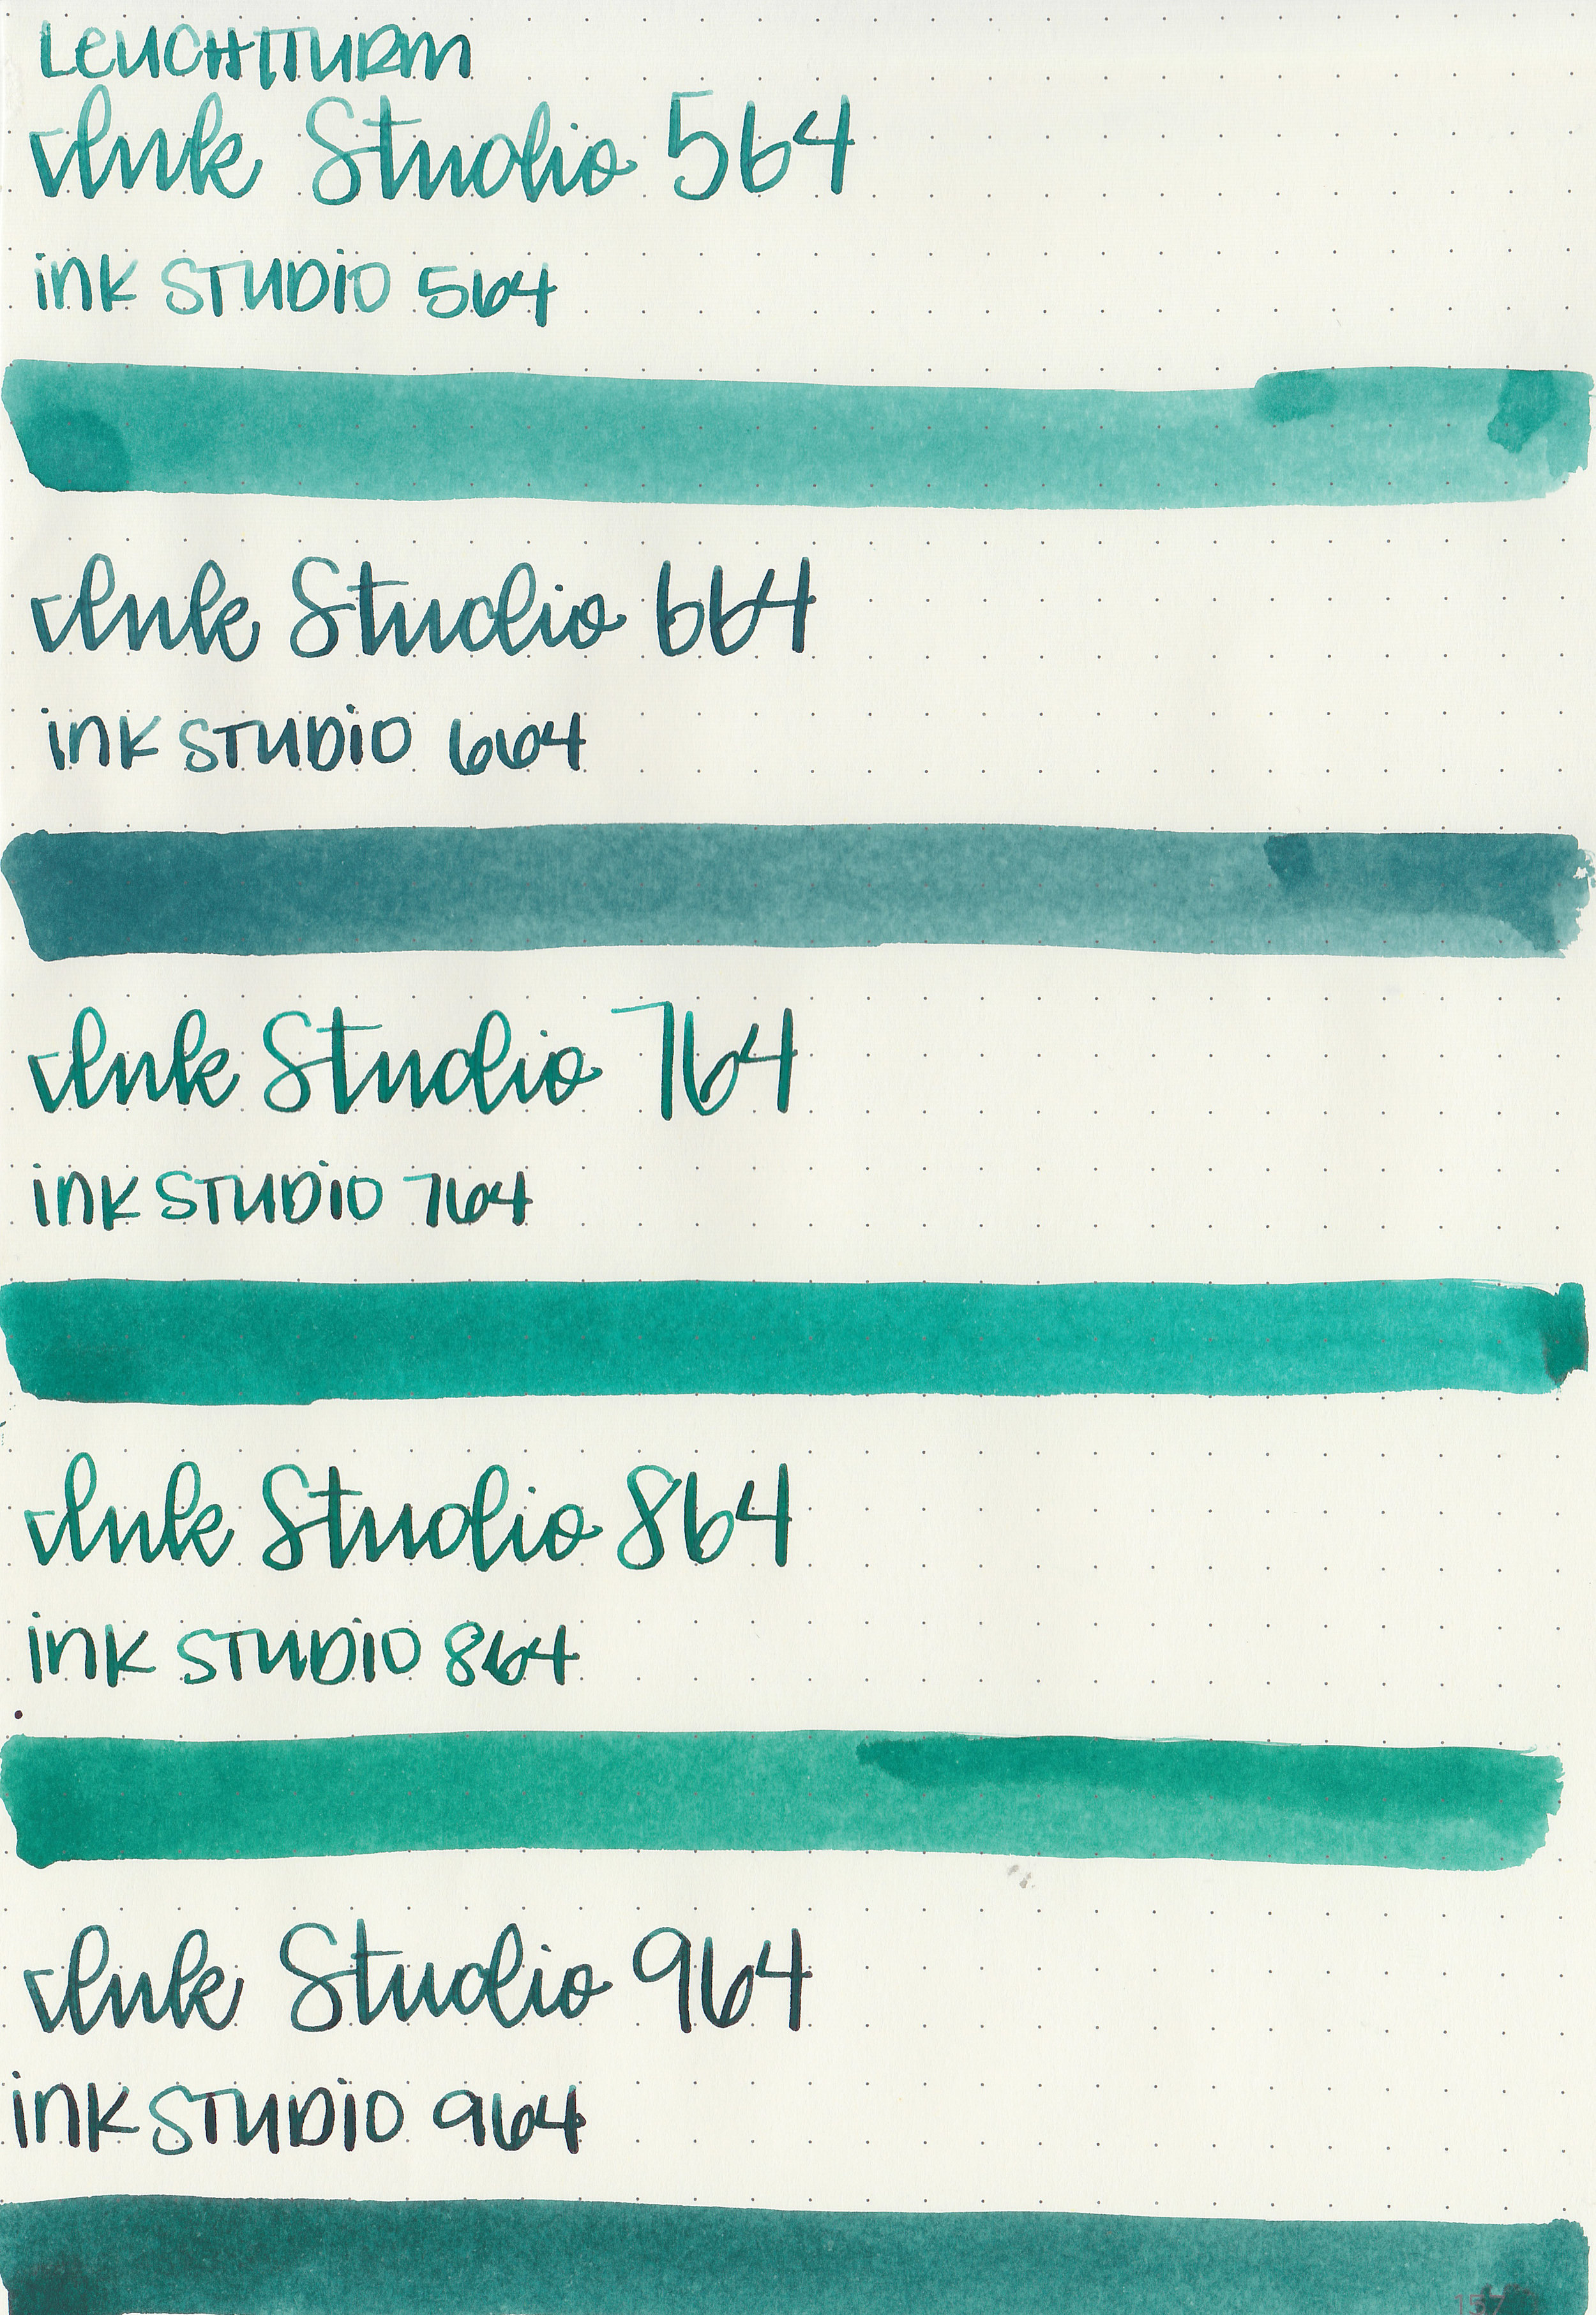 LEUCHTTURM
Ink Studio 564
INK STUDIO 564
Ink Studio 664
INK STUDIO 664
Ink Studio 764
INK STUDIO 764
Ink Studio 864
INK STUDIO 864
Ink Studio 964
INK STUDIO 964
157